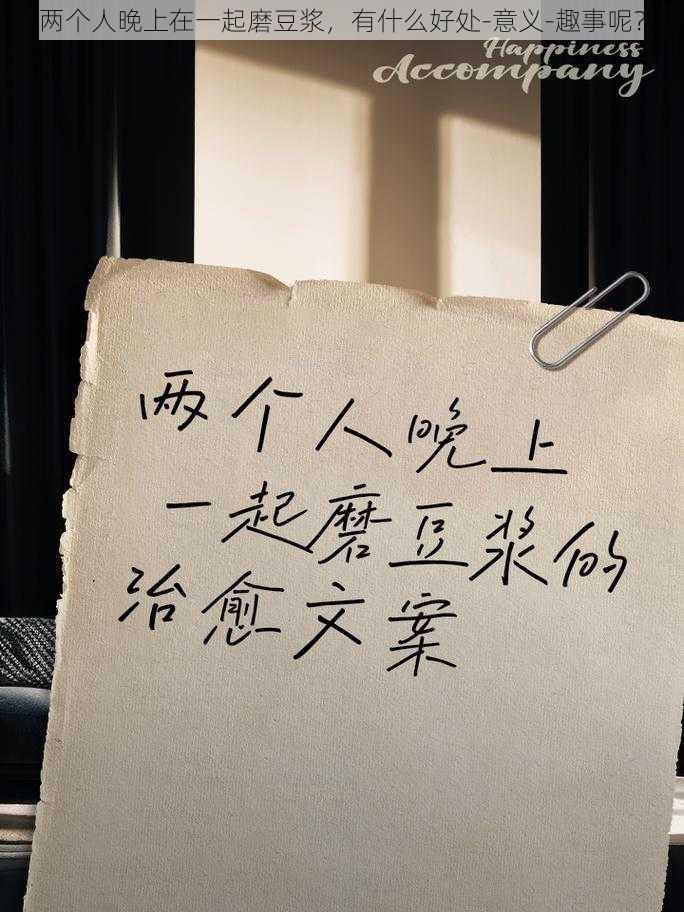 两个人晚上在一起磨豆浆，有什么好处-意义-趣事呢?
Happiness
Accompany
两个人晚上
一起磨豆浆的
治愈文案